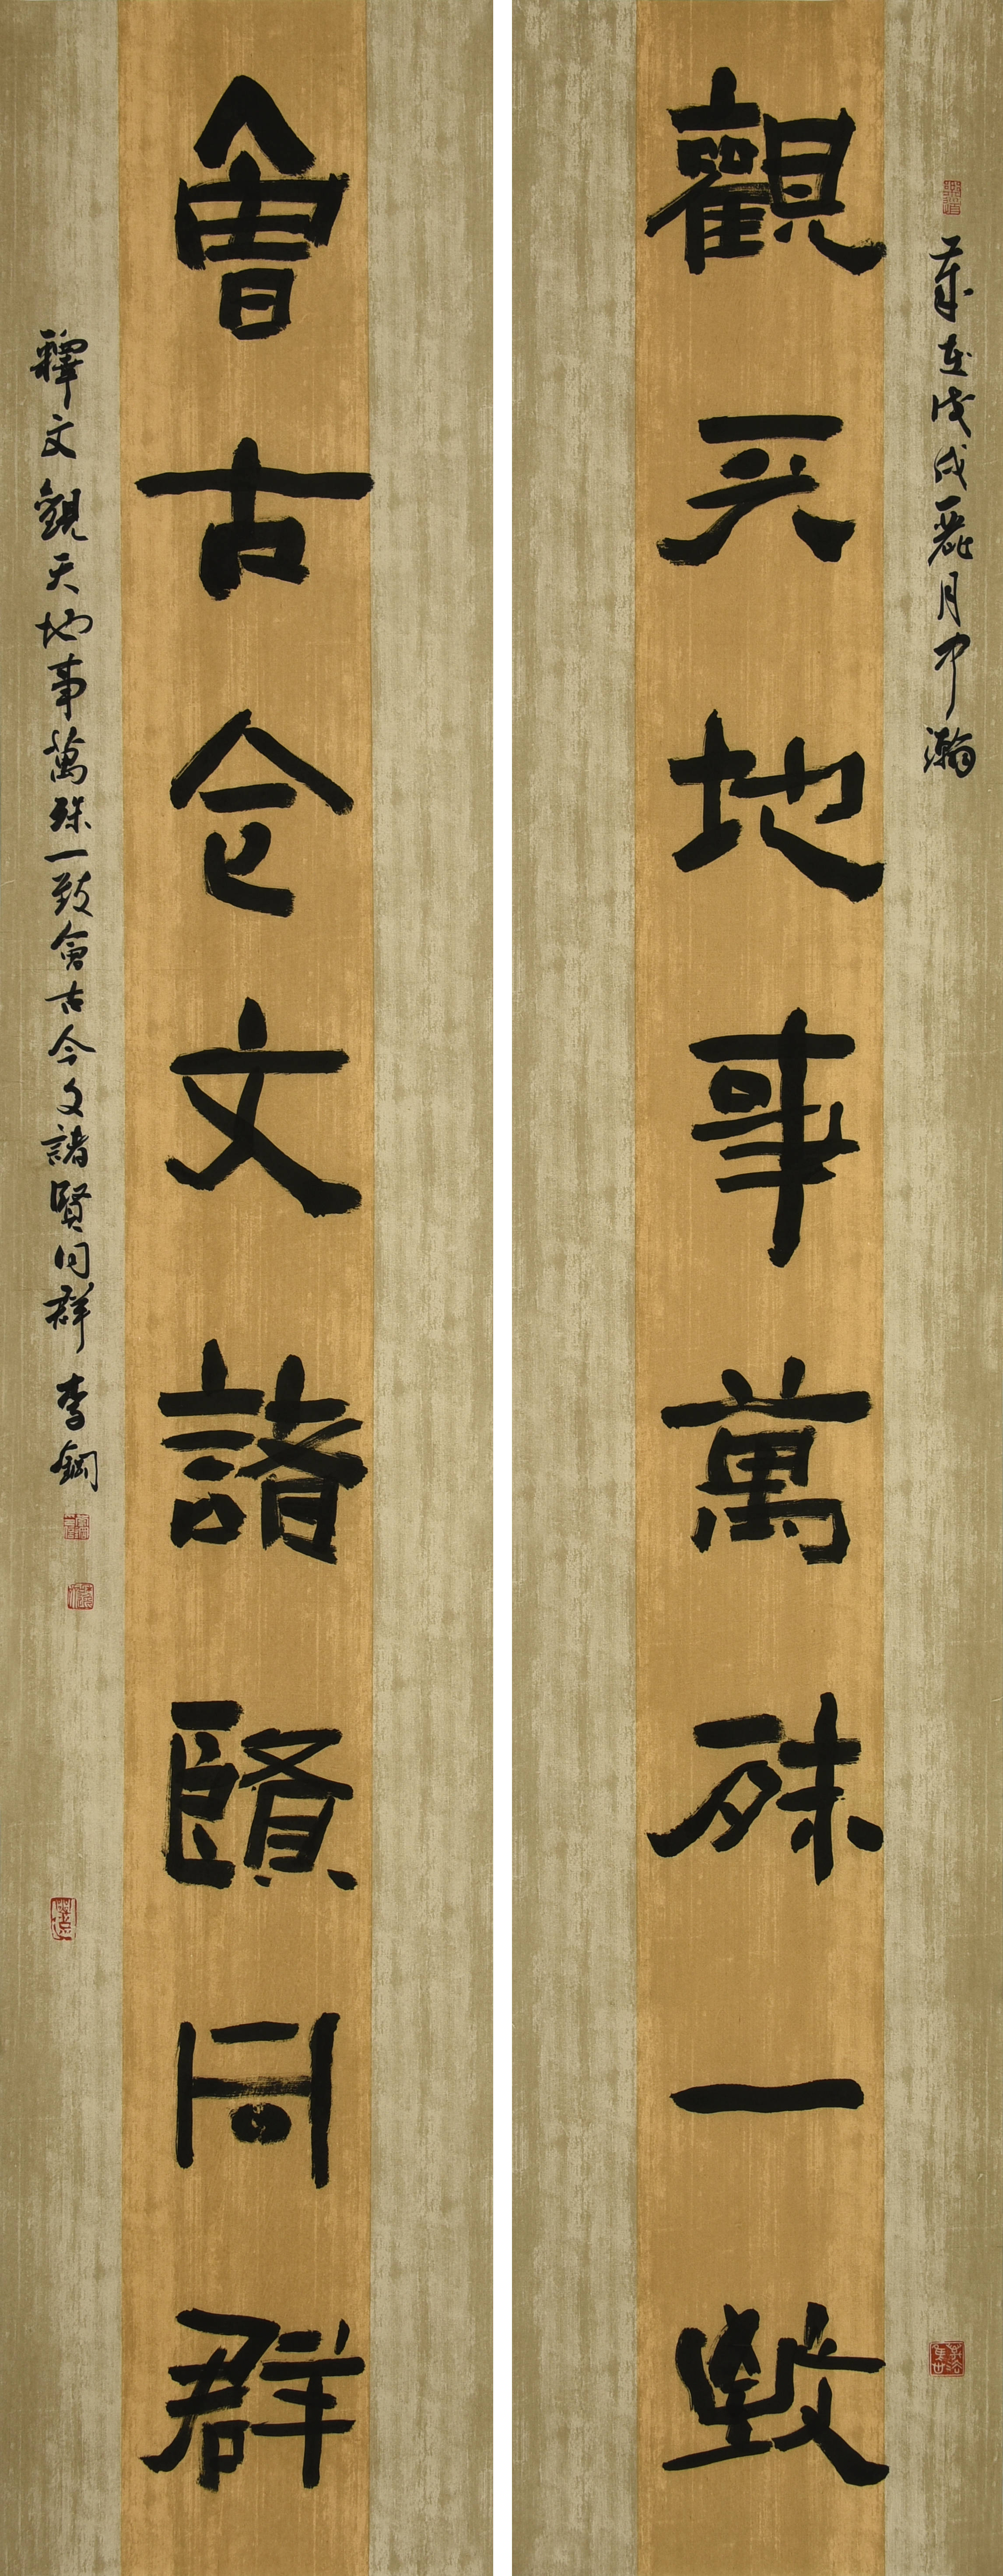 觀天地事萬殊一致
歲在戊戌麗月中瀚
會古今文諸賢同群
釋文觀天地事萬殊一致會古今文諸賢同群 李鋼